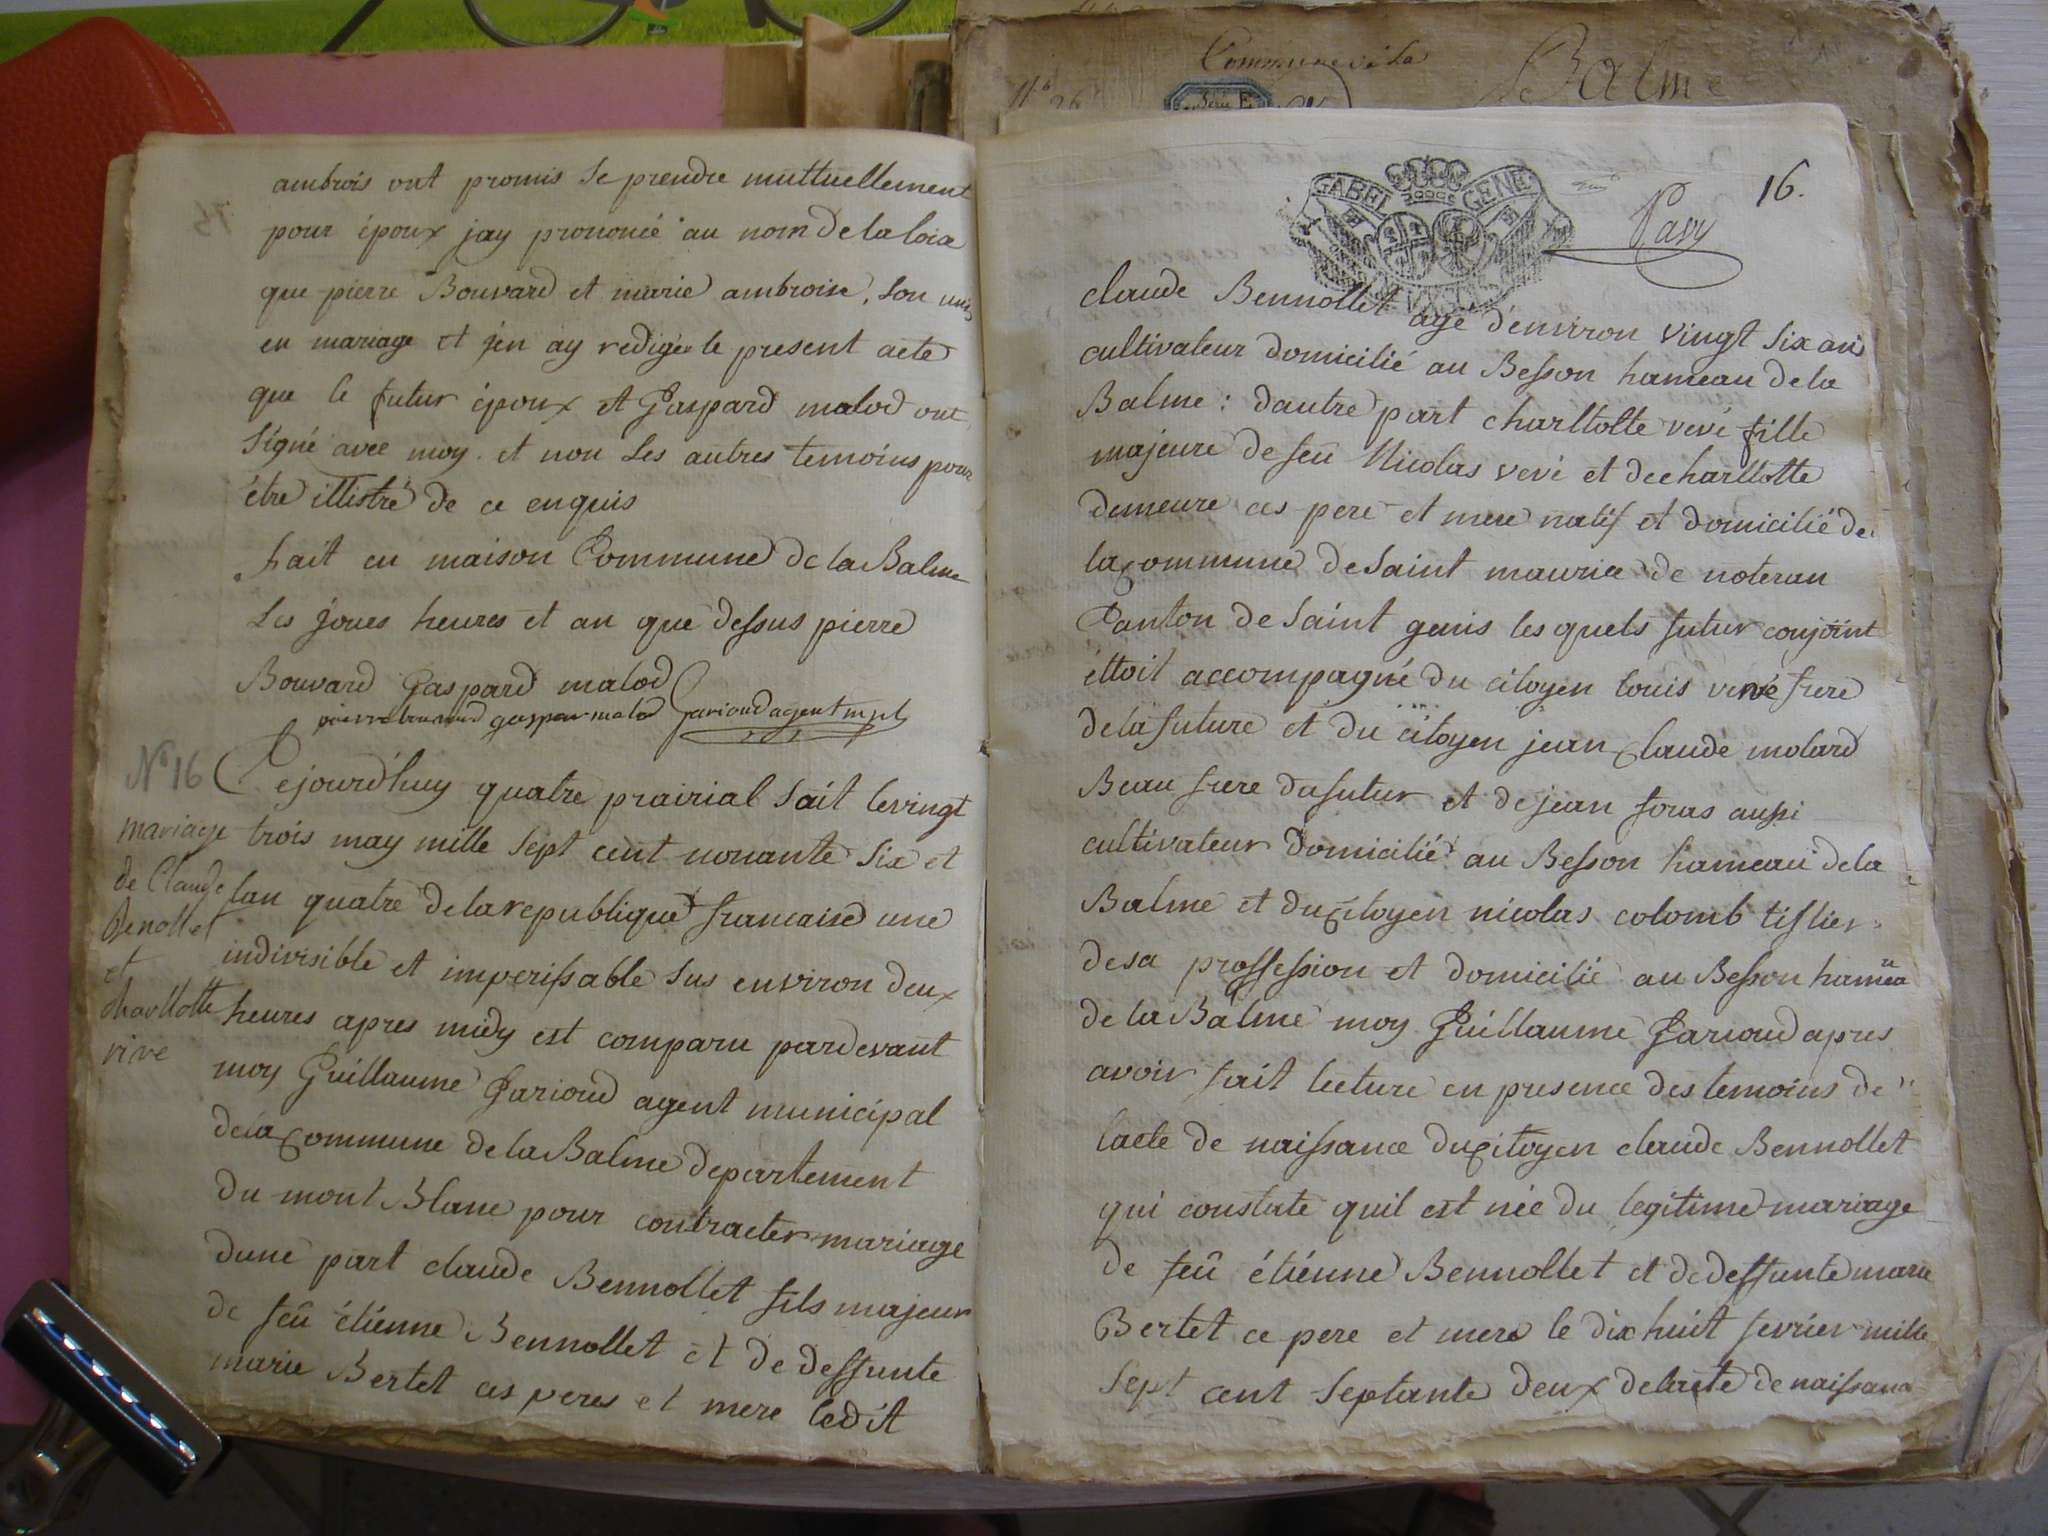 Commune de la
Balme
N° 26
Série E
ambrois ont promis se prendre muttuellement
pour époux jay prononcé au nom de la loix
que pierre Bouvard et marie ambroise, son unis
en mariage et jen ay redigée le present acte
que le futur époux et Gaspard malod ont
signé avec moy et non les autres temoins pour
être illistré de ce enquis
fait en maison Commune de la Balme
Les joues heures et an que dessus pierre
Bouvard Gaspard malod
pierre bouvard gaspar malod Garioud agent mpl
N° 16
mariage
de Claude
Benollet
et
charllotte
vive
Cejourd'huy quatre prairial sait levingt
trois may mille sept cent nonante six et
lan quatre de la republique francaise une
indivisible et imperissable sus environ deux
heures apres midy est comparu pardevant
moy Guillaume Garioud agent municipal
dela Commune de la Balme departement
du mont Blanc pour contracter mariage
dune part claude Bennollet fils majeur
de feû étiénne Bennollet et de deffunte
marie Bertet ces peres et mere ledit
GABEL GENE
16.
claude Bennollet agé d'environ vingt six ans
cultivateur domicilié au Besson hameau de la
Balme : dautre part charltotte vevé fille
majeure de feu Nicolas vevé et de charllotte
demeure ces pere et mere natif et domicilié de
la Commune de Saint maurice de noteran
Canton de Saint genis les quels futur conjoint
éttoit accompagné du citoyen louis vevé frere
de la future et du citoyen jean Claude molard
Beau frere du futur et de jean foras aussi
cultivateur domicilié au Besson hameau de la
Balme et du Citoyen nicolas colomb tissier
desa proffession et domicilié au Besson hamea u
de la Balme moy Guillaume Garioud apres
avoir fait lecture en presence des temoins de
lacte de naissance du Citoyen claude Bennollet
qui constate quil est née du legitime mariage
de feû étiénne Bennollet et de deffunte marie
Bertet ce pere et mere le dix huit fevrier mille
sept cent septante deux delacte de naissance